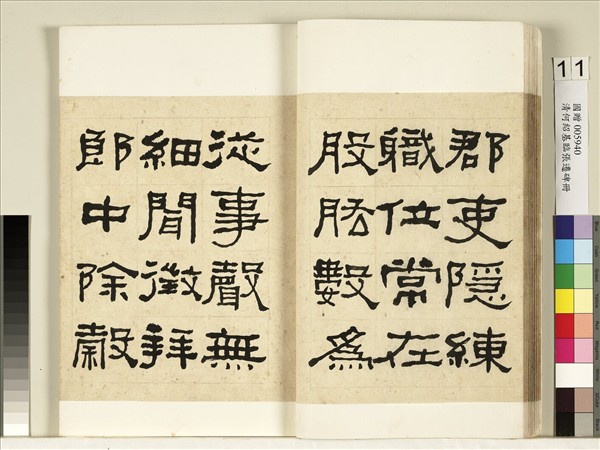 郡吏隱練
職位常在
股肱數為
從事聲無
細聞徵拜
郎中除穀
11
國贈 005940
清何紹基臨張遷碑冊